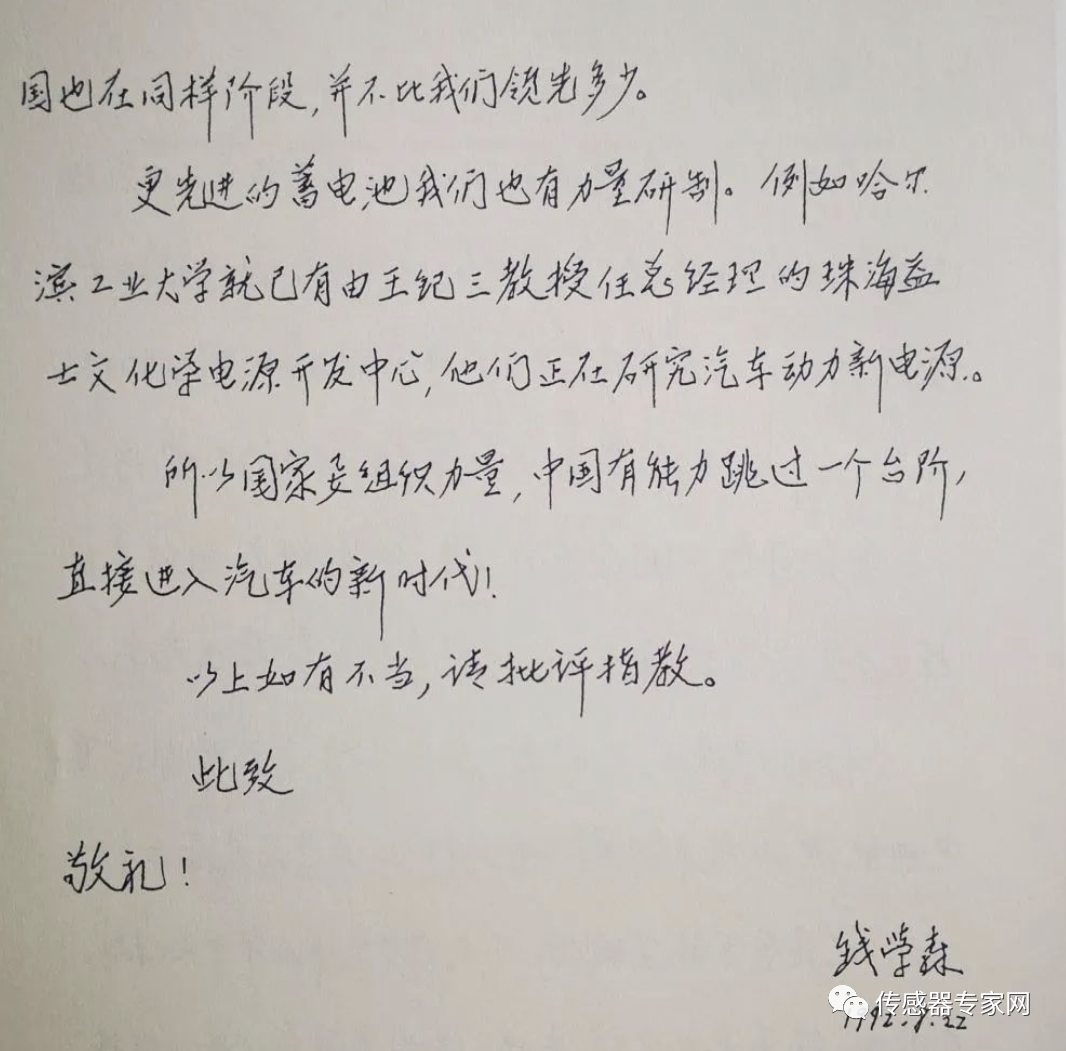 国也在同样阶段，并不比我们领先多少。
更先进的蓄电池我们也有力量研制。例如哈尔
滨工业大学就已有由王纪三教授任总经理的珠海益
士文化学电源开发中心，他们正在研究汽车动力新电源。
所以国家要组织力量，中国有能力跳过一个台阶，
直接进入汽车的新时代！
以上如有不当，请批评指教。
此致
敬礼！
钱学森
传感器专家网
1992.8.22